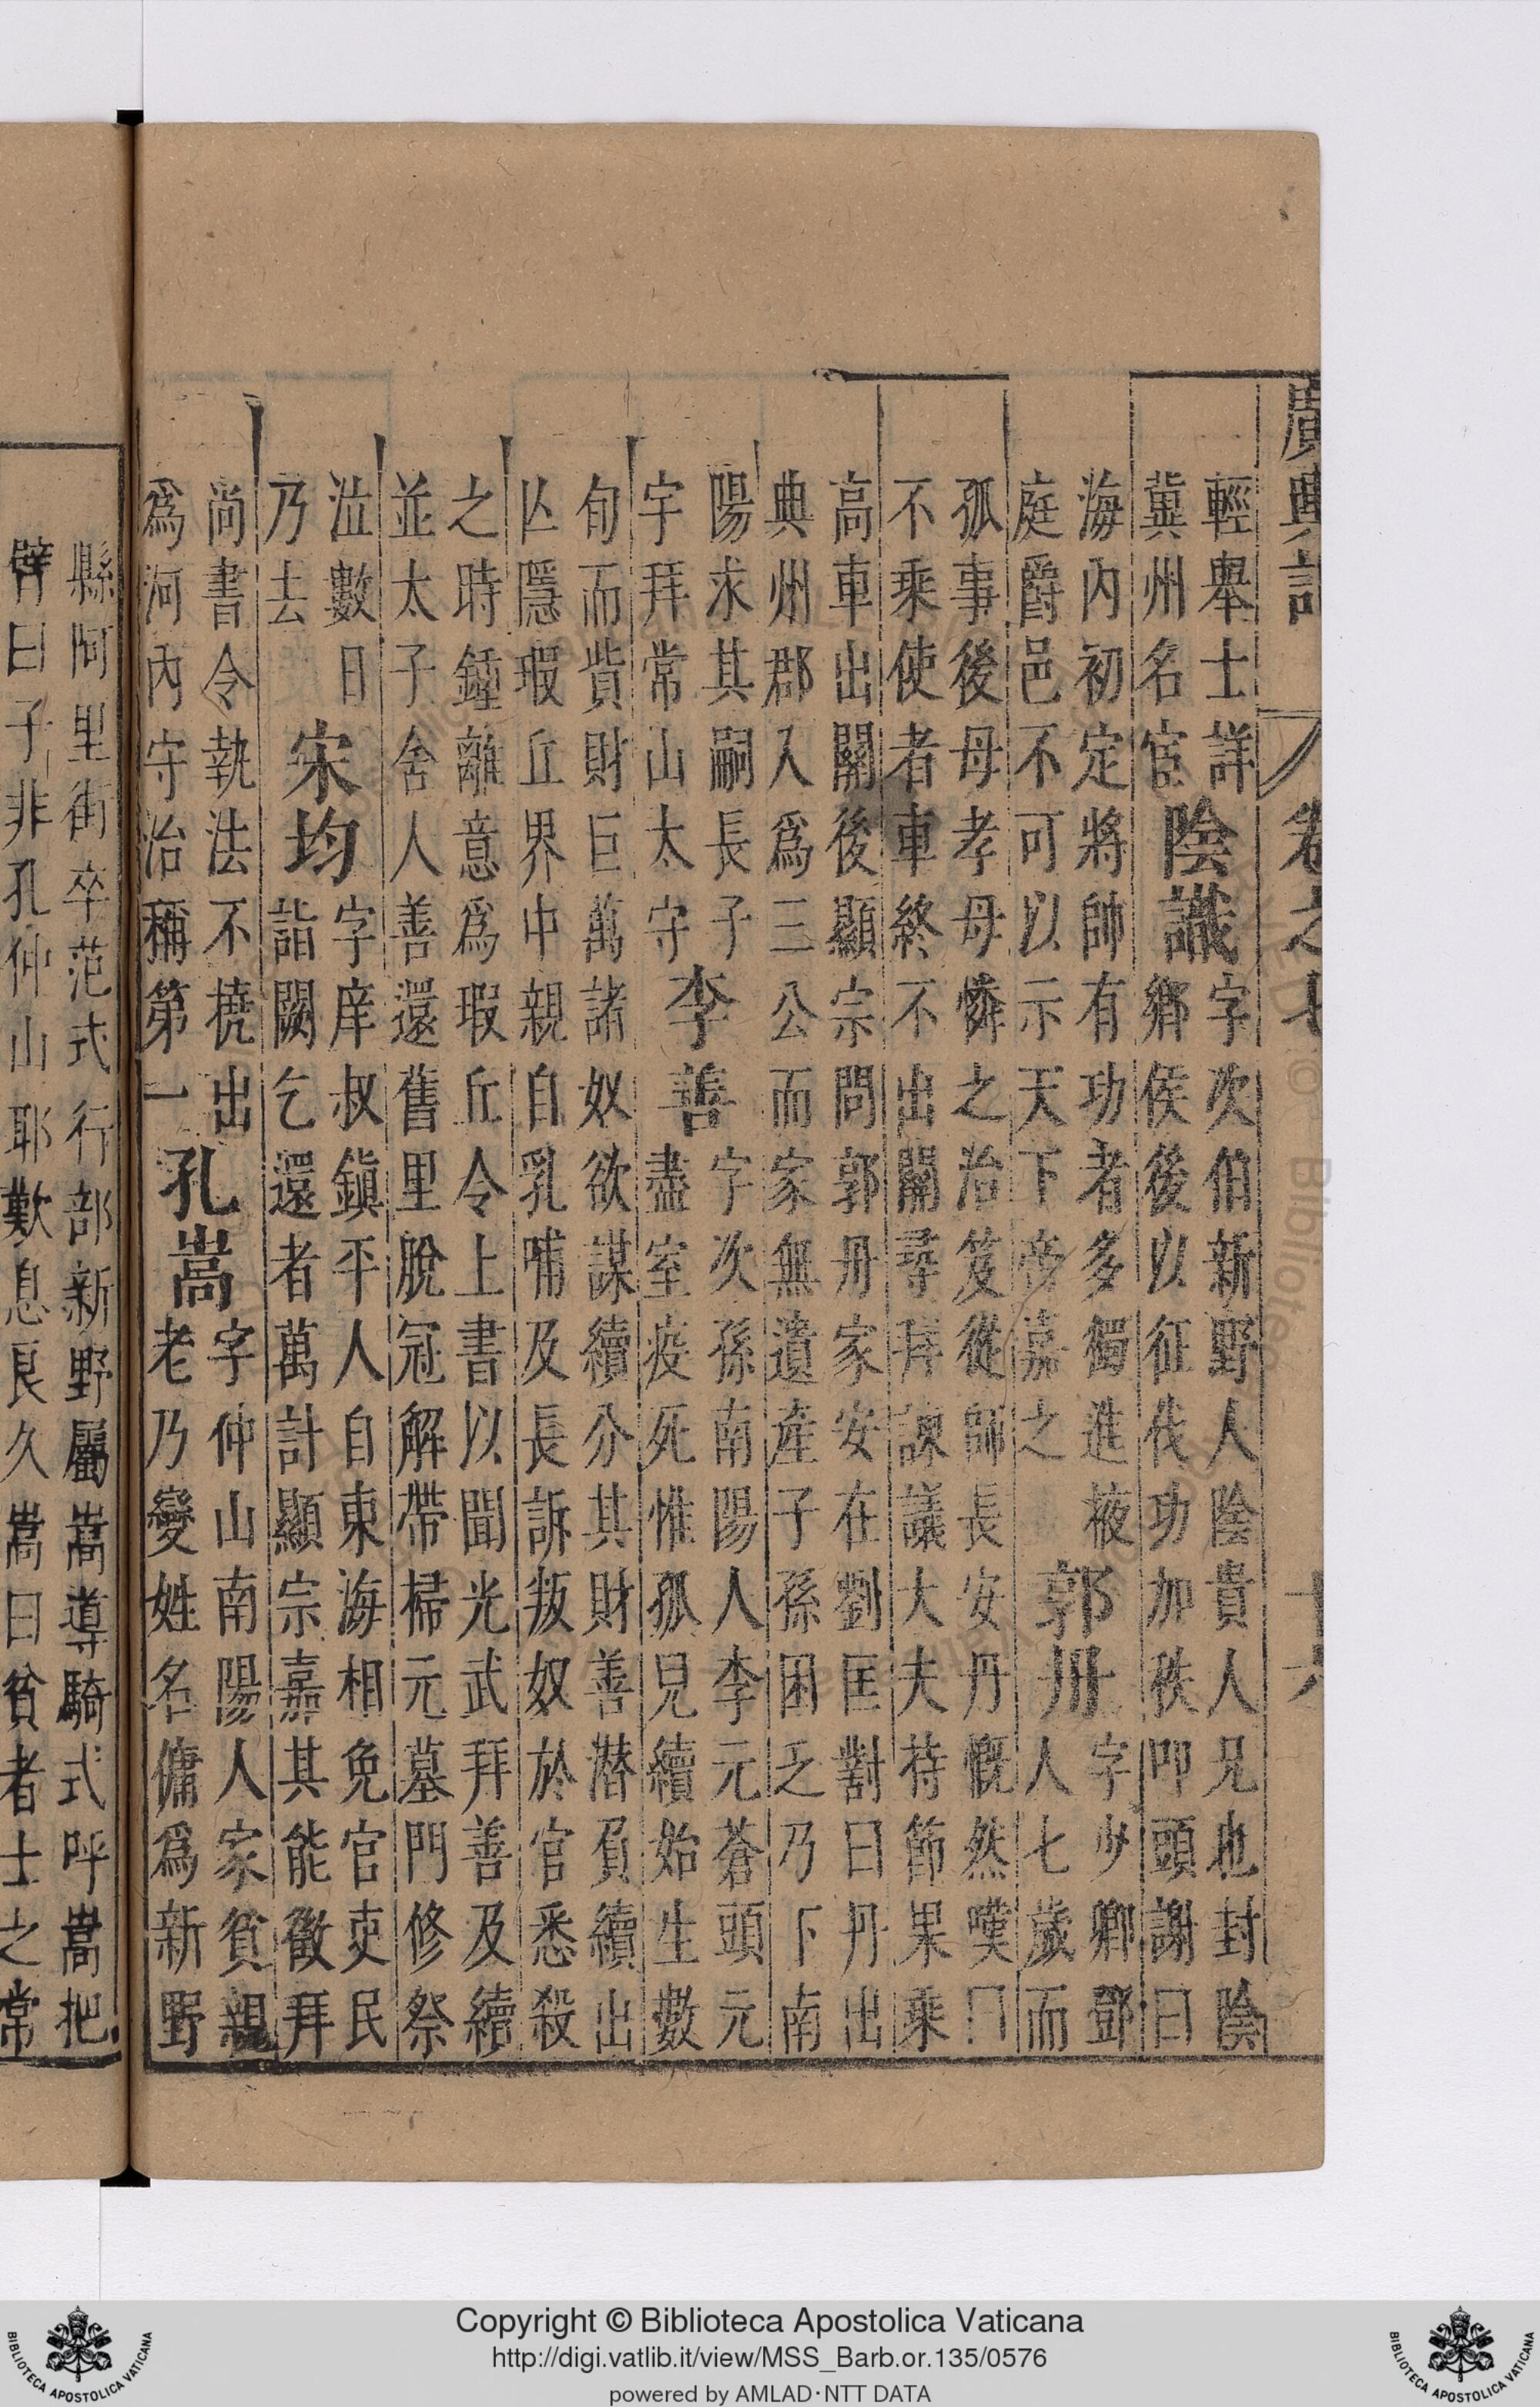 廣輿記 卷之七 十六
輕舉士詳
冀州名宦
陰識
字次伯新野人陰貴人兄也封陰
鄉侯後以征伐功加秩叩頭謝曰
海內初定將帥有功者多獨進掖
庭爵邑不可以示天下帝嘉之
郭丹
字少卿鄧
人七歲而
孤事後母孝母憐之治笈從師長安丹慨然嘆曰
不乘使者車終不出關尋拜諫議大夫持節果乘
高車出關後顯宗問郭丹家安在劉匡對曰丹出
典州郡入爲三公而家無遺產子孫困乏乃下南
陽求其嗣長子
宇拜常山太守
李善
字次孫南陽人李元蒼頭元
盡室疫死惟孤兒續始生數
旬而貲財巨萬諸奴欲謀續分其財善潜負續出
亾隱瑕丘界中親自乳哺及長訴叛奴於官悉殺
之時鍾離意爲瑕丘令上書以聞光武拜善及續
並太子舍人善還舊里脫冠解帶掃元墓門修祭
泣數日
乃去
宋均
字庠叔鎮平人自東海相免官吏民
詣闕乞還者萬計顯宗嘉其能徵拜
尚書令執法不撓出
爲河內守治稱第一
孔嵩
字仲山南陽人家貧親
老乃變姓名傭爲新野
縣阿里街卒范式行部新野屬嵩導騎式呼嵩把
臂曰子非孔仲山耶歎息良久嵩曰貧者士之常
Copyright © Biblioteca Apostolica Vaticana
http://digi.vatlib.it/view/MSS_Barb.or.135/0576
powered by AMLAD·NTT DATA
BIBLIOTECA APOSTOLICA VATICANA
BIBLIOTECA APOSTOLICA VATICANA